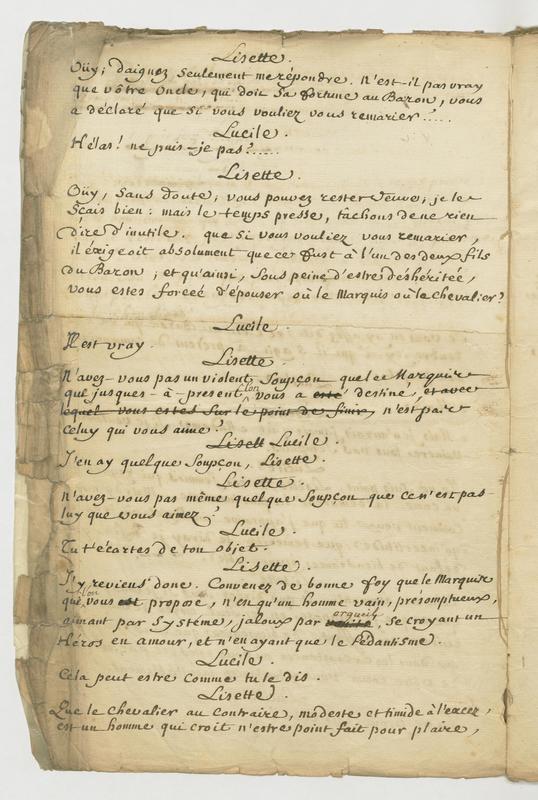 Lisette.
Oüy; daignez seulement me répondre. N'est-il pas vray
que vôtre Oncle, qui doit sa fortune au Baron, vous
a déclaré que si vous vouliez vous remarier.....
Lucile.
Hélas! ne puis-je pas?.....
Lisette.
Oüy, sans doute; vous pouvez rester veuve; je le
sçais bien: mais le temps presse, tâchons de ne rien
dire d'inutile. que si vous vouliez vous remarier,
il éxigeoit absolument que ce fust à l'un des deux fils
du Baron; et qu'ainsi, sous peine d'estre desheritée,
vous estes forcée d'épouser où le Marquis où le Chevalier?
Lucile.
Il est vray.
Lisette.
N'avez-vous pas un violent soupçon que le Marquis
que jusques-à-present l'on vous a esté destiné, et avec
lequel vous estes sur le point de finir, n'est pas
celuy qui vous aime?
Lisett Lucile.
J'en ay quelque soupçon, Lisette.
Lisette.
N'avez-vous pas même quelque soupçon que ce n'est pas
luy que vous aimez?
Lucile.
Tu t'écartes de ton objet.
Lisette.
J'y reviens donc. Convenez de bonne foy que le Marquis
que l'on vous est propose, n'en qu'un homme vain, présomptueux,
aimant par Systéme, jaloux par orgueil, se croyant un
Héros en amour, et n'en ayant que le Pedantisme.
Lucile.
Cela peut estre comme tu le dis.
Lisette.
Que le Chevalier au contraire, modeste et timide à l'excez,
est un homme qui croit n'estre point fait pour plaire,